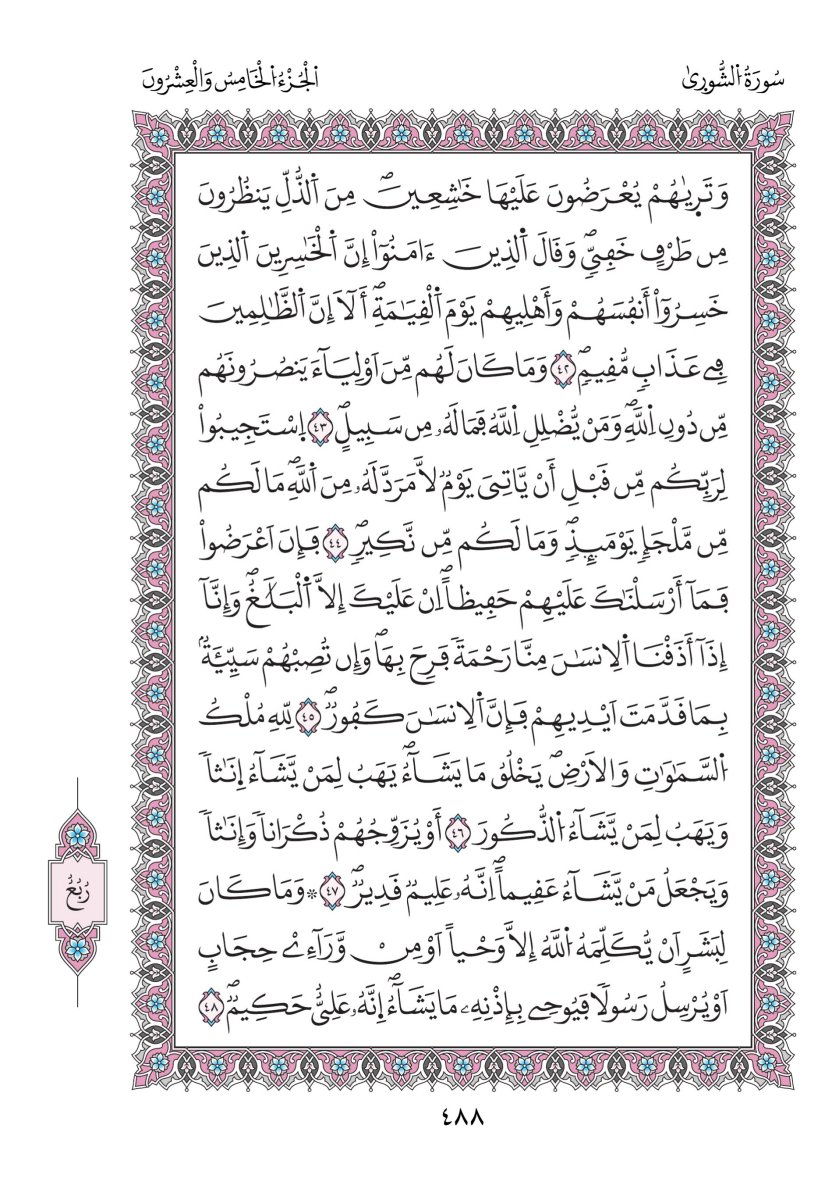 سُورَةُ الشُّورىٰ
الجُزْءُ الْخَامِسُ وَالْعِشْرُونَ
وَتَر۪يٰهُمْ يُعْرَضُونَ عَلَيْهَا خَٰشِعِينَ مِنَ اَ۬لذُّلِّ يَنظُرُونَ
مِن طَرْفٍ خَفِيّٖۖ وَقَالَ اَ۬لذِينَ ءَامَنُوٓاْ إِنَّ اَ۬لْخَٰسِرِينَ اَ۬لذِينَ
خَسِرُوٓاْ أَنفُسَهُمْ وَأَهْلِيهِمْ يَوْمَ اَ۬لْقِيَٰمَةِۖ أَلَآ إِنَّ اَ۬لظَّٰلِمِينَ
فِے عَذَابٖ مُّقِيمٖۖ ٤٢ وَمَا كَانَ لَهُم مِّنَ اَوْلِيَآءَ يَنصُرُونَهُم
مِّن دُونِ اِ۬للَّهِۖ وَمَنْ يُّضْلِلِ اِ۬للَّهُ فَمَا لَهُۥ مِن سَبِيلٍۖ ٤٣ اِ۪سْتَجِيبُواْ
لِرَبِّكُم مِّن قَبْلِ أَنْ يَّاتِيَ يَوْمٞ لَّا مَرَدَّ لَهُۥ مِنَ اَ۬للَّهِۖ مَا لَكُم
مِّن مَّلْجَإٖ يَوْمَئِذٖۖ وَمَا لَكُم مِّن نَّكِيرٖۖ ٤٤ فَإِنَ اَعْرَضُواْ
فَمَآ أَرْسَلْنَٰكَ عَلَيْهِمْ حَفِيظاًۖ اِنْ عَلَيْكَ إِلَّا اَ۬لْبَلَٰغُۖ وَإِنَّآ
إِذَآ أَذَقْنَا اَ۬لِانسَٰنَ مِنَّا رَحْمَةٗ فَرِحَ بِهَاۖ وَإِن تُصِبْهُمْ سَيِّئَةُۢ
بِمَا قَدَّمَتَ اَيْدِيهِمْ فَإِنَّ اَ۬لِانسَٰنَ كَفُورٞۖ ٤٥ لِّلهِ مُلْكُ
اُ۬لسَّمَٰوَٰتِ وَالَارْضِۖ يَخْلُقُ مَا يَشَآءُۖ يَهَبُ لِمَنْ يَّشَآءُ إِنَٰثاٗ
وَيَهَبُ لِمَنْ يَّشَآءُ اُ۬لذُّكُورَ ٤٦ أَوْ يُزَوِّجُهُمْ ذُكْرَاناٗ وَإِنَٰثاٗ
وَيَجْعَلُ مَنْ يَّشَآءُ عَقِيماًۖ اِنَّهُۥ عَلِيمٞ قَدِيرٞۖ ٤٧ ۞وَمَا كَانَ
لِبَشَرٍ اَنْ يُّكَلِّمَهُ اُ۬للَّهُ إِلَّا وَحْياً اَوْ مِنْ وَّرَآءِےْ حِجَابٍ
اَوْ يُرْسِلُ رَسُولاٗ فَيُوحِے بِإِذْنِهِۦ مَا يَشَآءُۖ اِنَّهُۥ عَلِيٌّ حَكِيمٞۖ ٤٨
رُبُعُ
٤٨٨